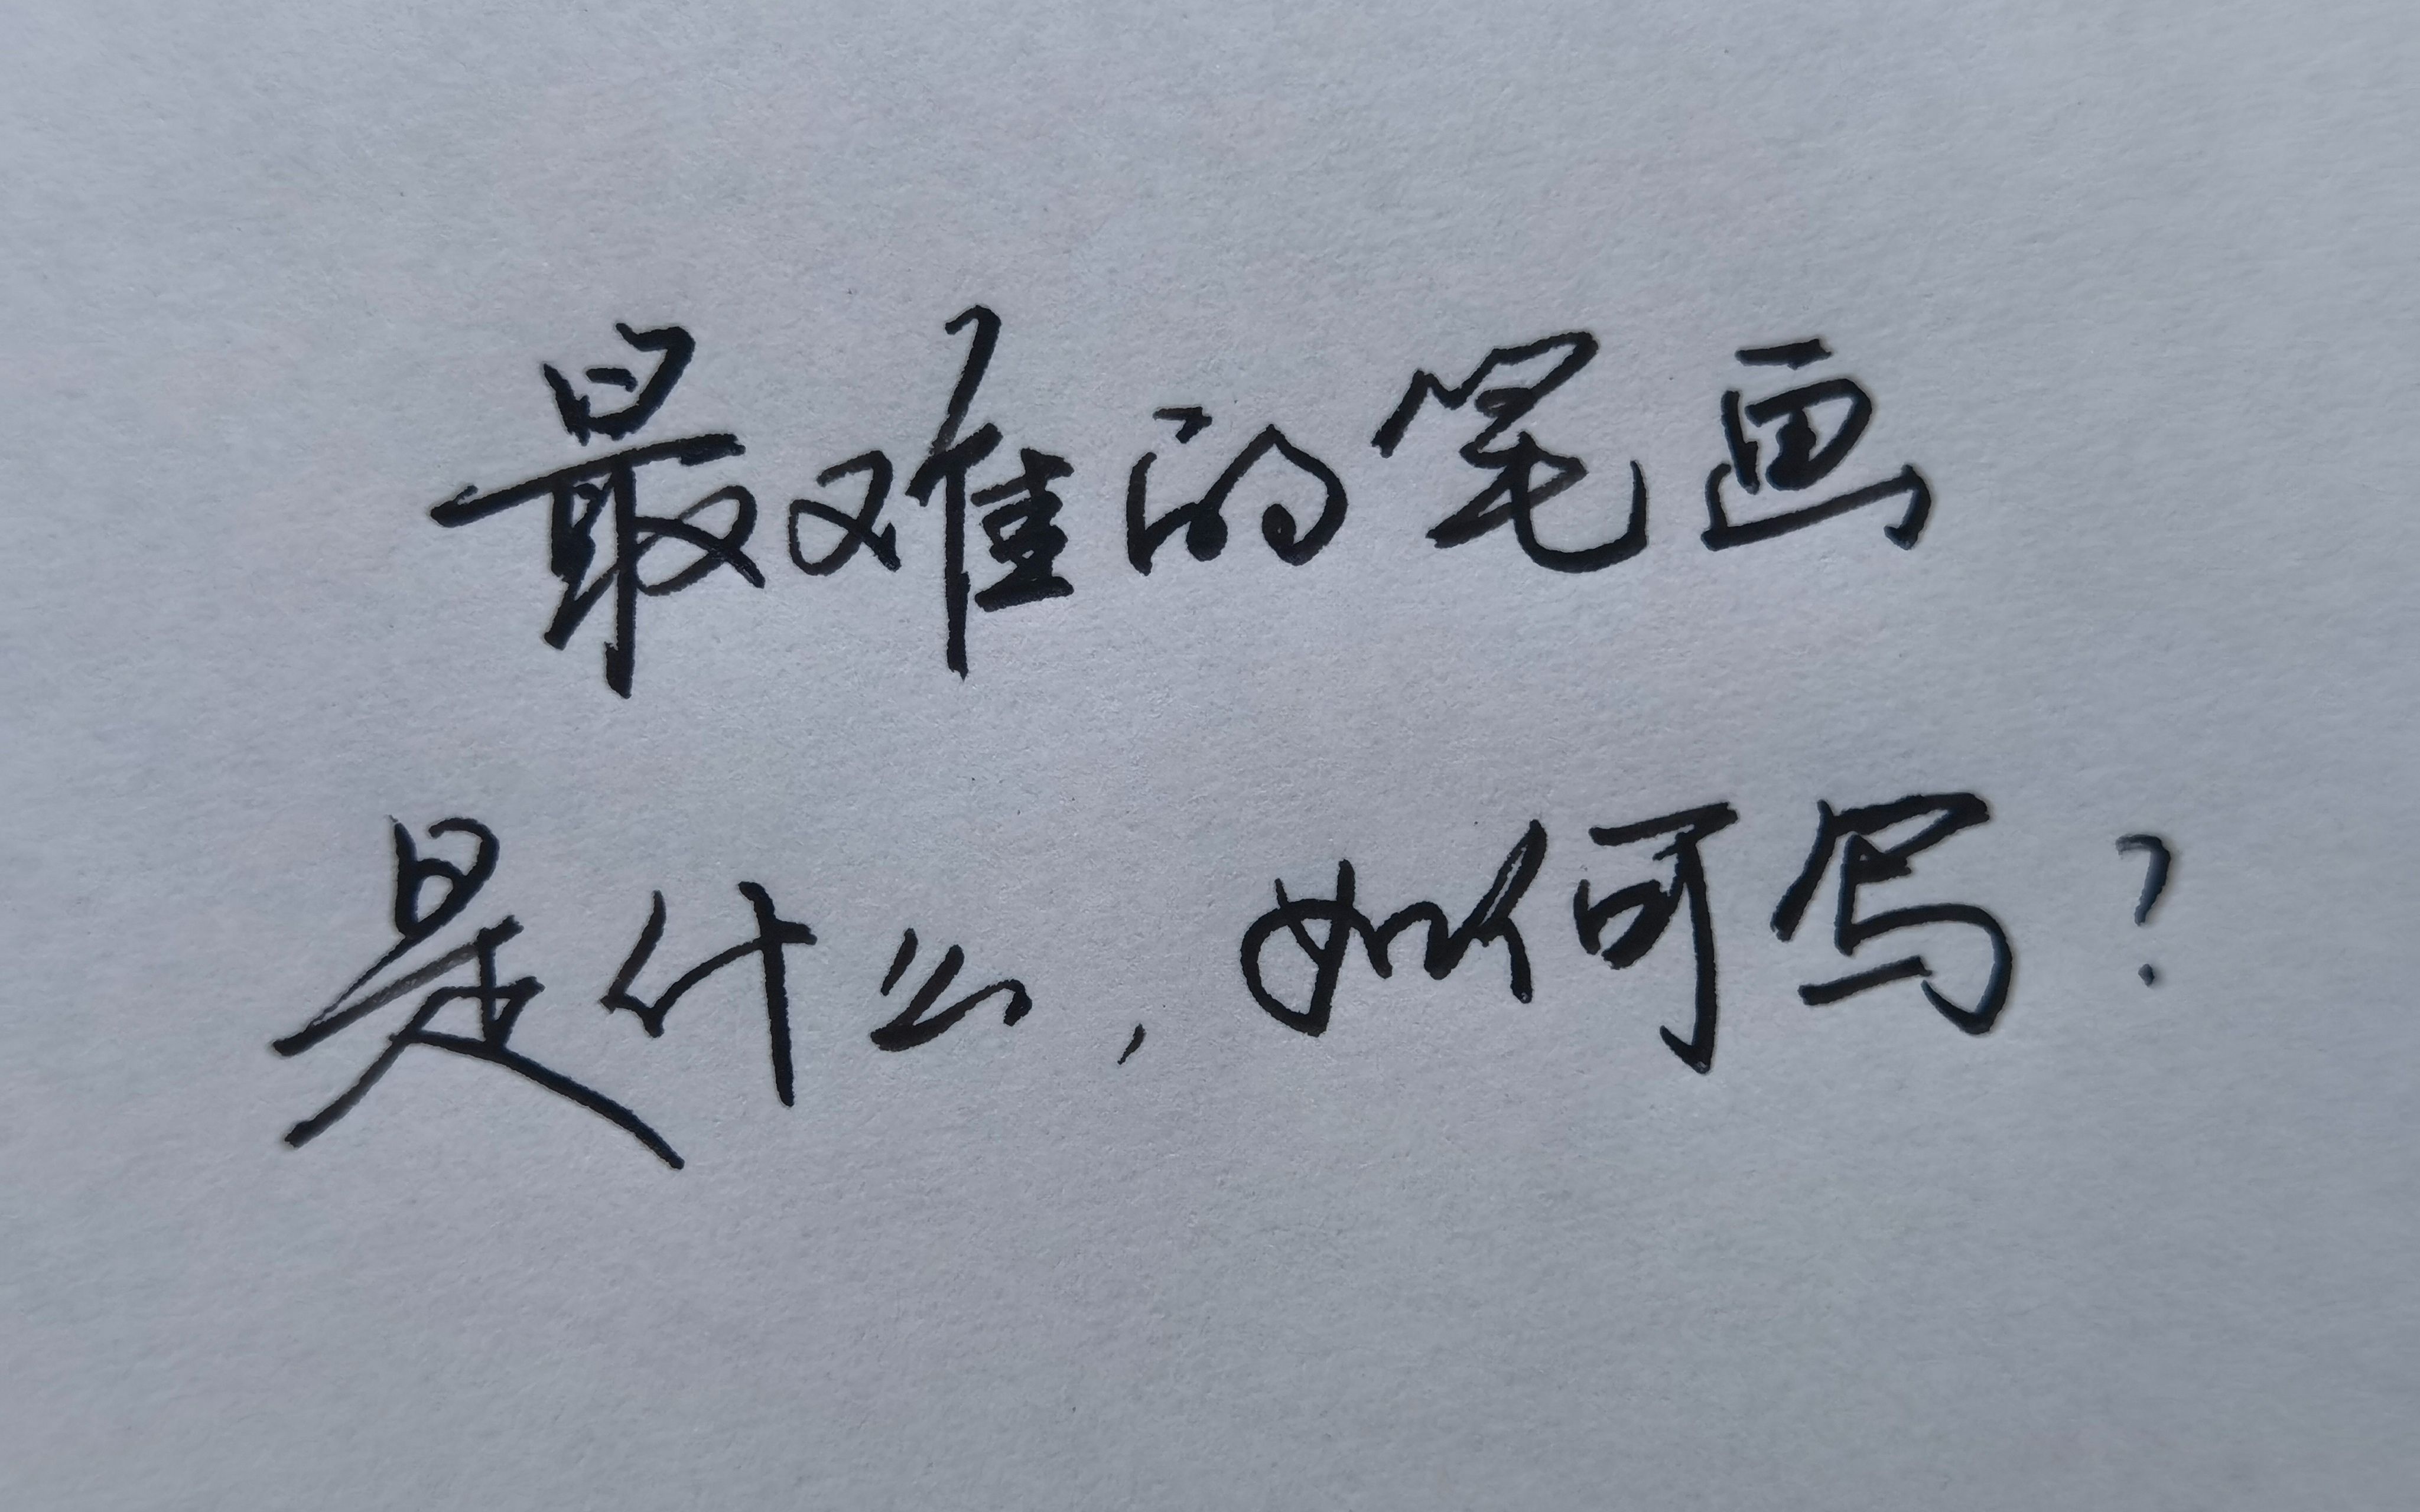 最难的笔画
是什么，如何写？